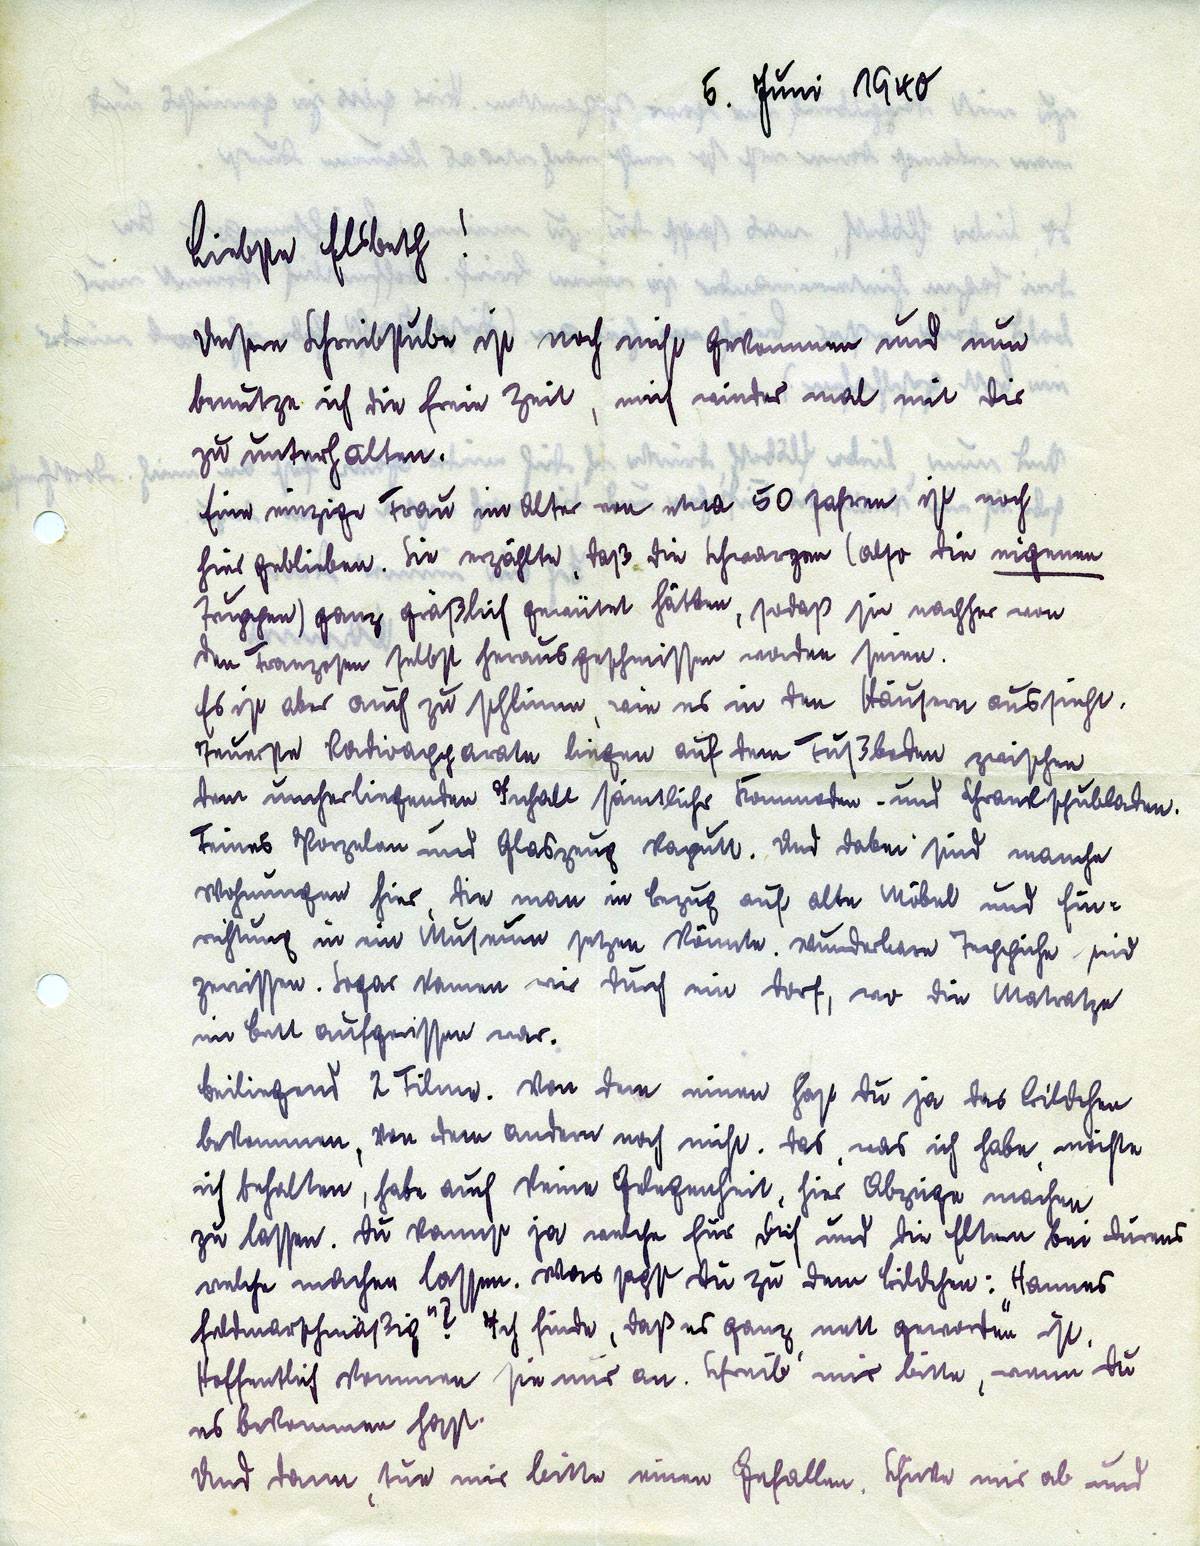 6. Juni 1940
Liebste Elsbeth!
Unsere Schreibstube ist noch nicht gekommen und nun
benutze ich die freie Zeit, mich wieder mal mit Dir
zu unterhalten.
Eine einzige Frau im Alter von etwa 50 Jahren ist noch
hier geblieben. Sie erzählte, daß die Schwarzen (also die eigenen
Truppen) ganz gräßlich gewütet hätten, sodaß sie nachher von
den Franzosen selbst herausgeschmissen worden seien.
Es ist aber auch zu schlimm, wie es in den Häusern aussieht.
Teuerste Radioapparate liegen auf dem Fußboden zwischen
dem umherliegenden Inhalt sämtlicher Kommoden- und Schrankschubladen.
Feines Porzelan und Glaszeug kaputt. Und dabei sind manche
Wohnungen hier, die man in bezug auf alte Möbel und Ein-
richtung in ein Museum setzen könnte. Wunderbare Teppiche sind
zerrissen. Sogar kamen wir durch ein Dorf, wo die Matratze
im Bett aufgerissen war.
Beiliegend 2 Filme. Von dem einen hast Du ja das Bildchen
bekommen, von dem andern noch nicht. Das, was ich habe, möchte
ich behalten, habe auch keine Gelegenheit, hier Abzüge machen
zu lassen. Du kannst ja welche für Dich und die Eltern bei Durens
welche machen lassen. Was sagst Du zu dem Bildchen: "Hannes
feldmarschmäßig"? Ich finde, daß es ganz nett geworden ist.
Hoffentlich kommen sie nur an. Schreib' mir bitte, wann Du
es bekommen hast.
Und dann, tue mir bitte einen Gefallen. Schicke mir ab und